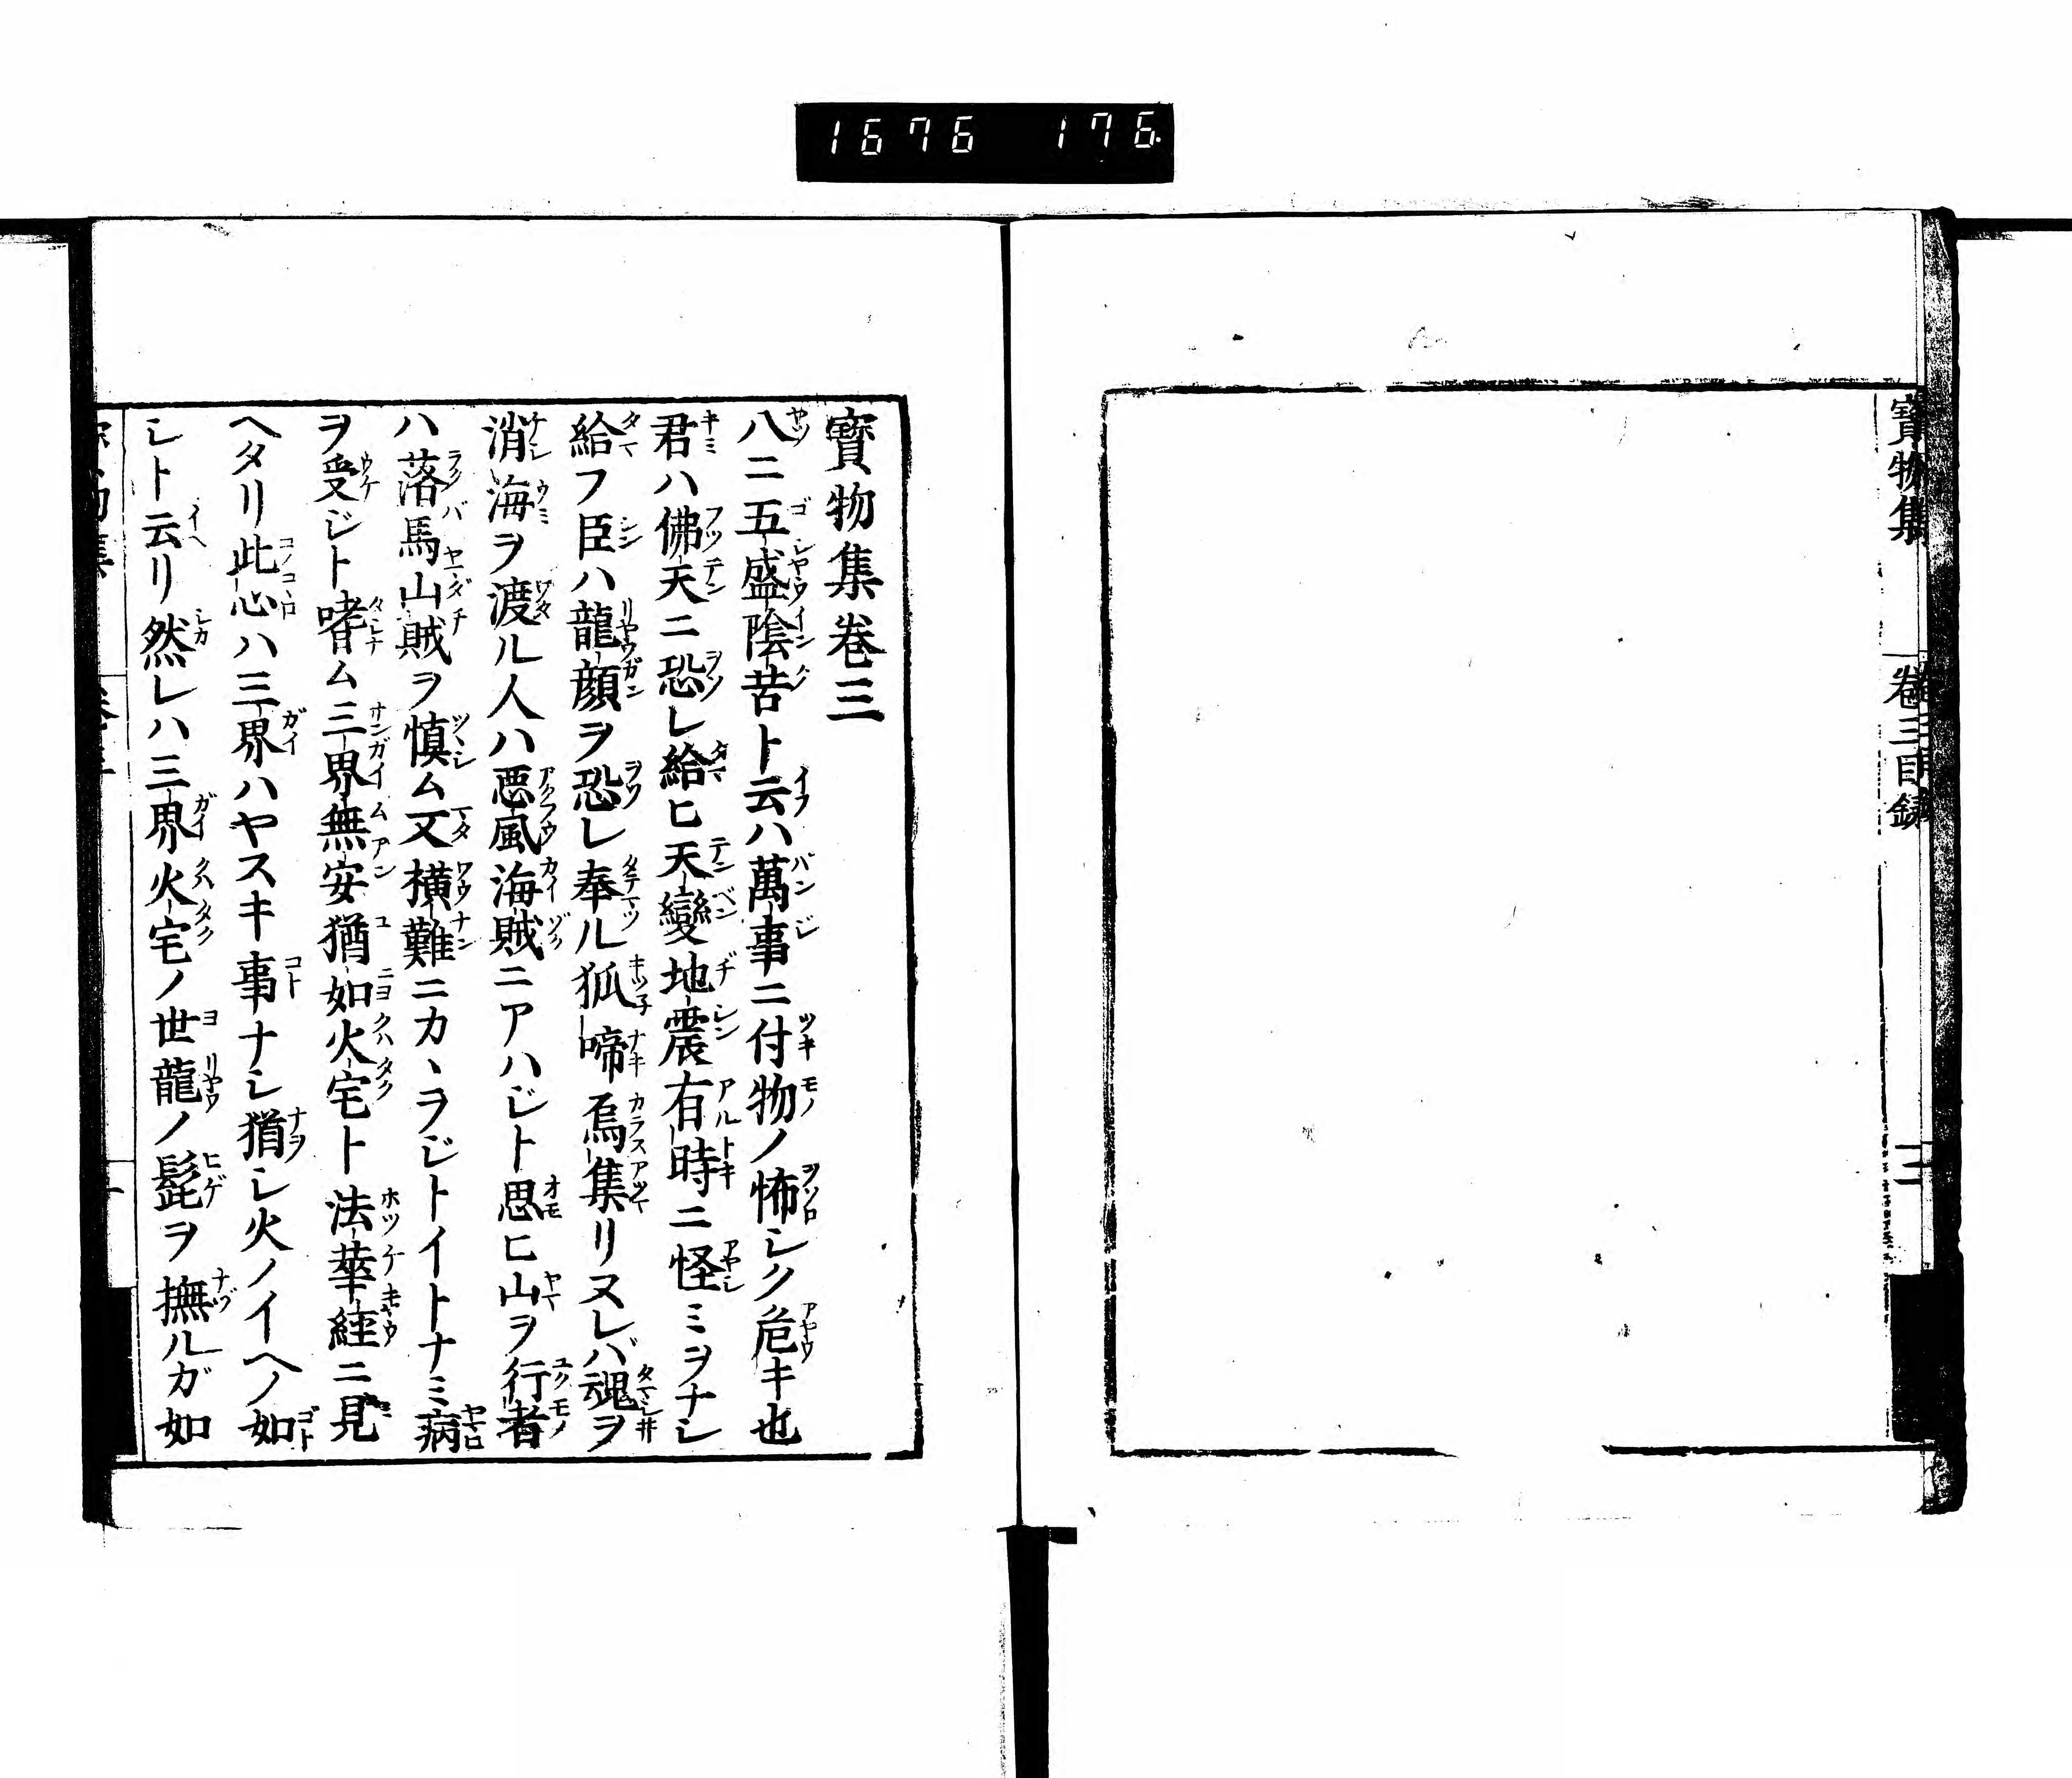 1676 176
寶物集
卷三目録
三
寶物集卷三
八ニ五盛陰苦ト云ハ萬事ニ付物ノ怖シク危キ也
君ハ佛天ニ恐レ給ヒ天變地震有時ニ怪ミヲナシ
給フ臣ハ龍顔ヲ恐レ奉ル狐啼烏集リヌレバ魂ヲ
消海ヲ渡ル人ハ悪風海賊ニアハジト思ヒ山ヲ行者
ハ落馬山賊ヲ慎ム又横難ニカヽラジトイトナミ病
ヲ受ジト嗜ム三界無安猶如火宅ト法華経ニ見
ヘタリ此心ハ三界ハヤスキ事ナシ猶シ火ノイヘノ如
シト云リ然レハ三界火宅ノ世龍ノ髭ヲ撫ルガ如